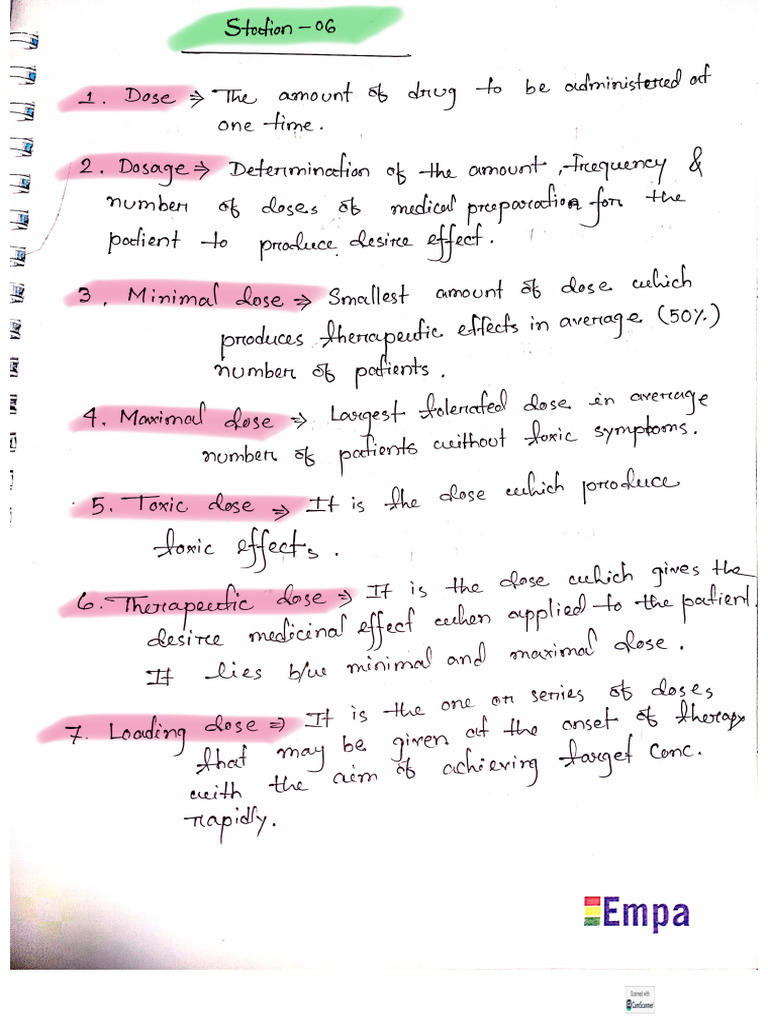 Station - 06
1. Dose ⇒ The amount of drug to be administered at
one time.
2. Dosage ⇒ Determination of the amount, frequency &
number of doses of medical preparation for the
patient to produce desire effect.
3. Minimal dose ⇒ Smallest amount of dose which
produces therapeutic effects in average (50%)
number of patients.
4. Maximal dose ⇒ Largest tolerated dose in average
number of patients without toxic symptoms.
5. Toxic dose ⇒ It is the dose which produce
toxic effects.
6. Therapeutic dose ⇒ It is the dose which gives the
desire medicinal effect when applied to the patient.
It lies b/w minimal and maximal dose.
7. Loading dose ⇒ It is the one or series of doses
that may be given at the onset of therapy
with the aim of achieving target conc.
rapidly.
Empa
Scanned with
CamScanner